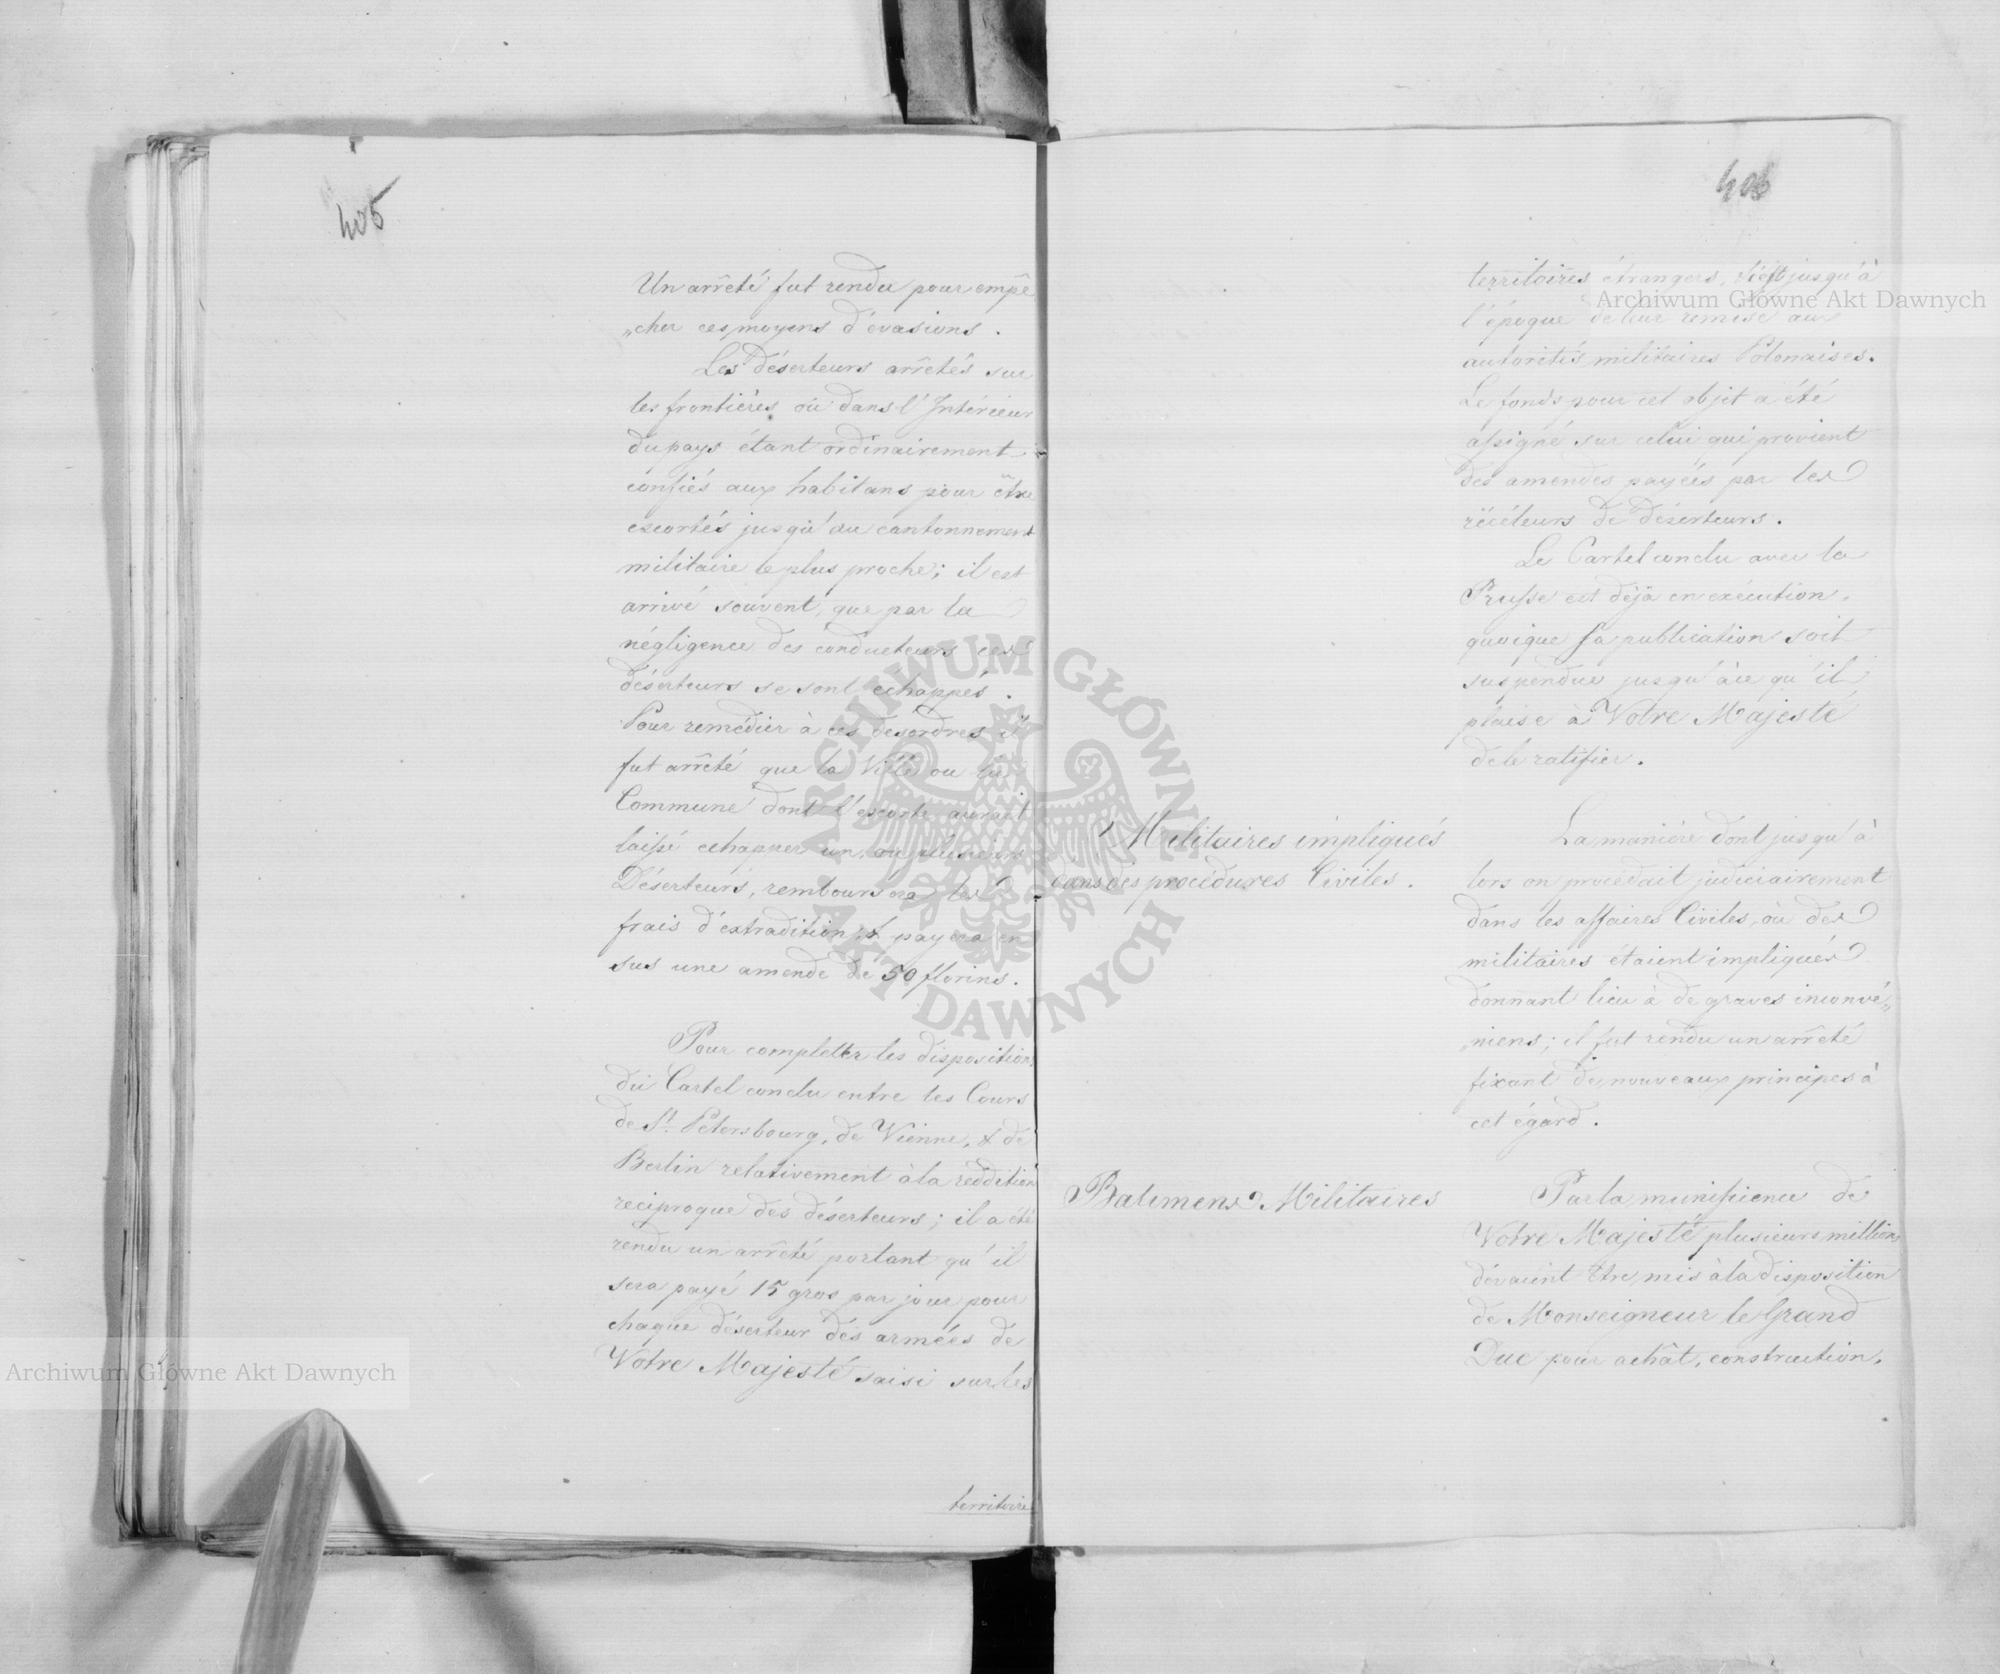 405
Un arrêté fut rendu pour empê
„cher ces moyens d'évasions.
Les déserteurs arrêtés sur
les frontières ou dans l'Intérieur
du pays étant ordinairement
confiés aux habitans pour être
escortés jusqu'au cantonnement
militaire le plus proche; il est
arrivé souvent, que par la
négligence des conducteurs ces
déserteurs se sont echappés.
Pour remédier à ces desordres il
fut arrêté que la Ville ou la
Commune dont l'escorte aurait
laissé echapper un, ou plusieurs
Déserteurs, remboursera les
frais d'extradition, & payera en
sus une amende de 50 florins.
Pour completter les dispositions
du Cartel conclu entre les Cours
de St. Petersbourg, de Vienne, & de
Berlin relativement à la reddition
reciproque des déserteurs; il a été
rendu un arrêté portant qu'il
sera payé 15 gros par jour pour
chaque déserteur des armées de
Votre Majesté saisi sur les
territoire
406
territoires étrangers, jusqu'à
l'époque de leur remise aux
autorités militaires Polonaises.
Le fonds pour cet objet a été
assigné sur celui qui provient
des amendes payées par les
récéleurs de déserteurs.
Le Cartel conclu avec la
Prusse est déjà en exécution,
quoique sa publication soit
suspendue jusqu'à ce qu'il
plaise à Votre Majesté
de le ratifier.
Militaires impliqués
dans des procédures Civiles.
La manière dont jusqu'à
lors on procédait judiciairement
dans les affaires Civiles, où des
militaires étaient impliqués
donnant lieu à de graves inconvé„
„niens; il fut rendu un arrêté
fixant de nouveaux principes à
cet égard.
Batimens Militaires
Par la munificence de
Votre Majesté plusieurs millions
dévaient être mis à la disposition
de Monseigneur le Grand
Duc pour achât, construction,
Archiwum Główne Akt Dawnych
Archiwum Główne Akt Dawnych
ARCHIWUM GŁÓWNE AKT DAWNYCH